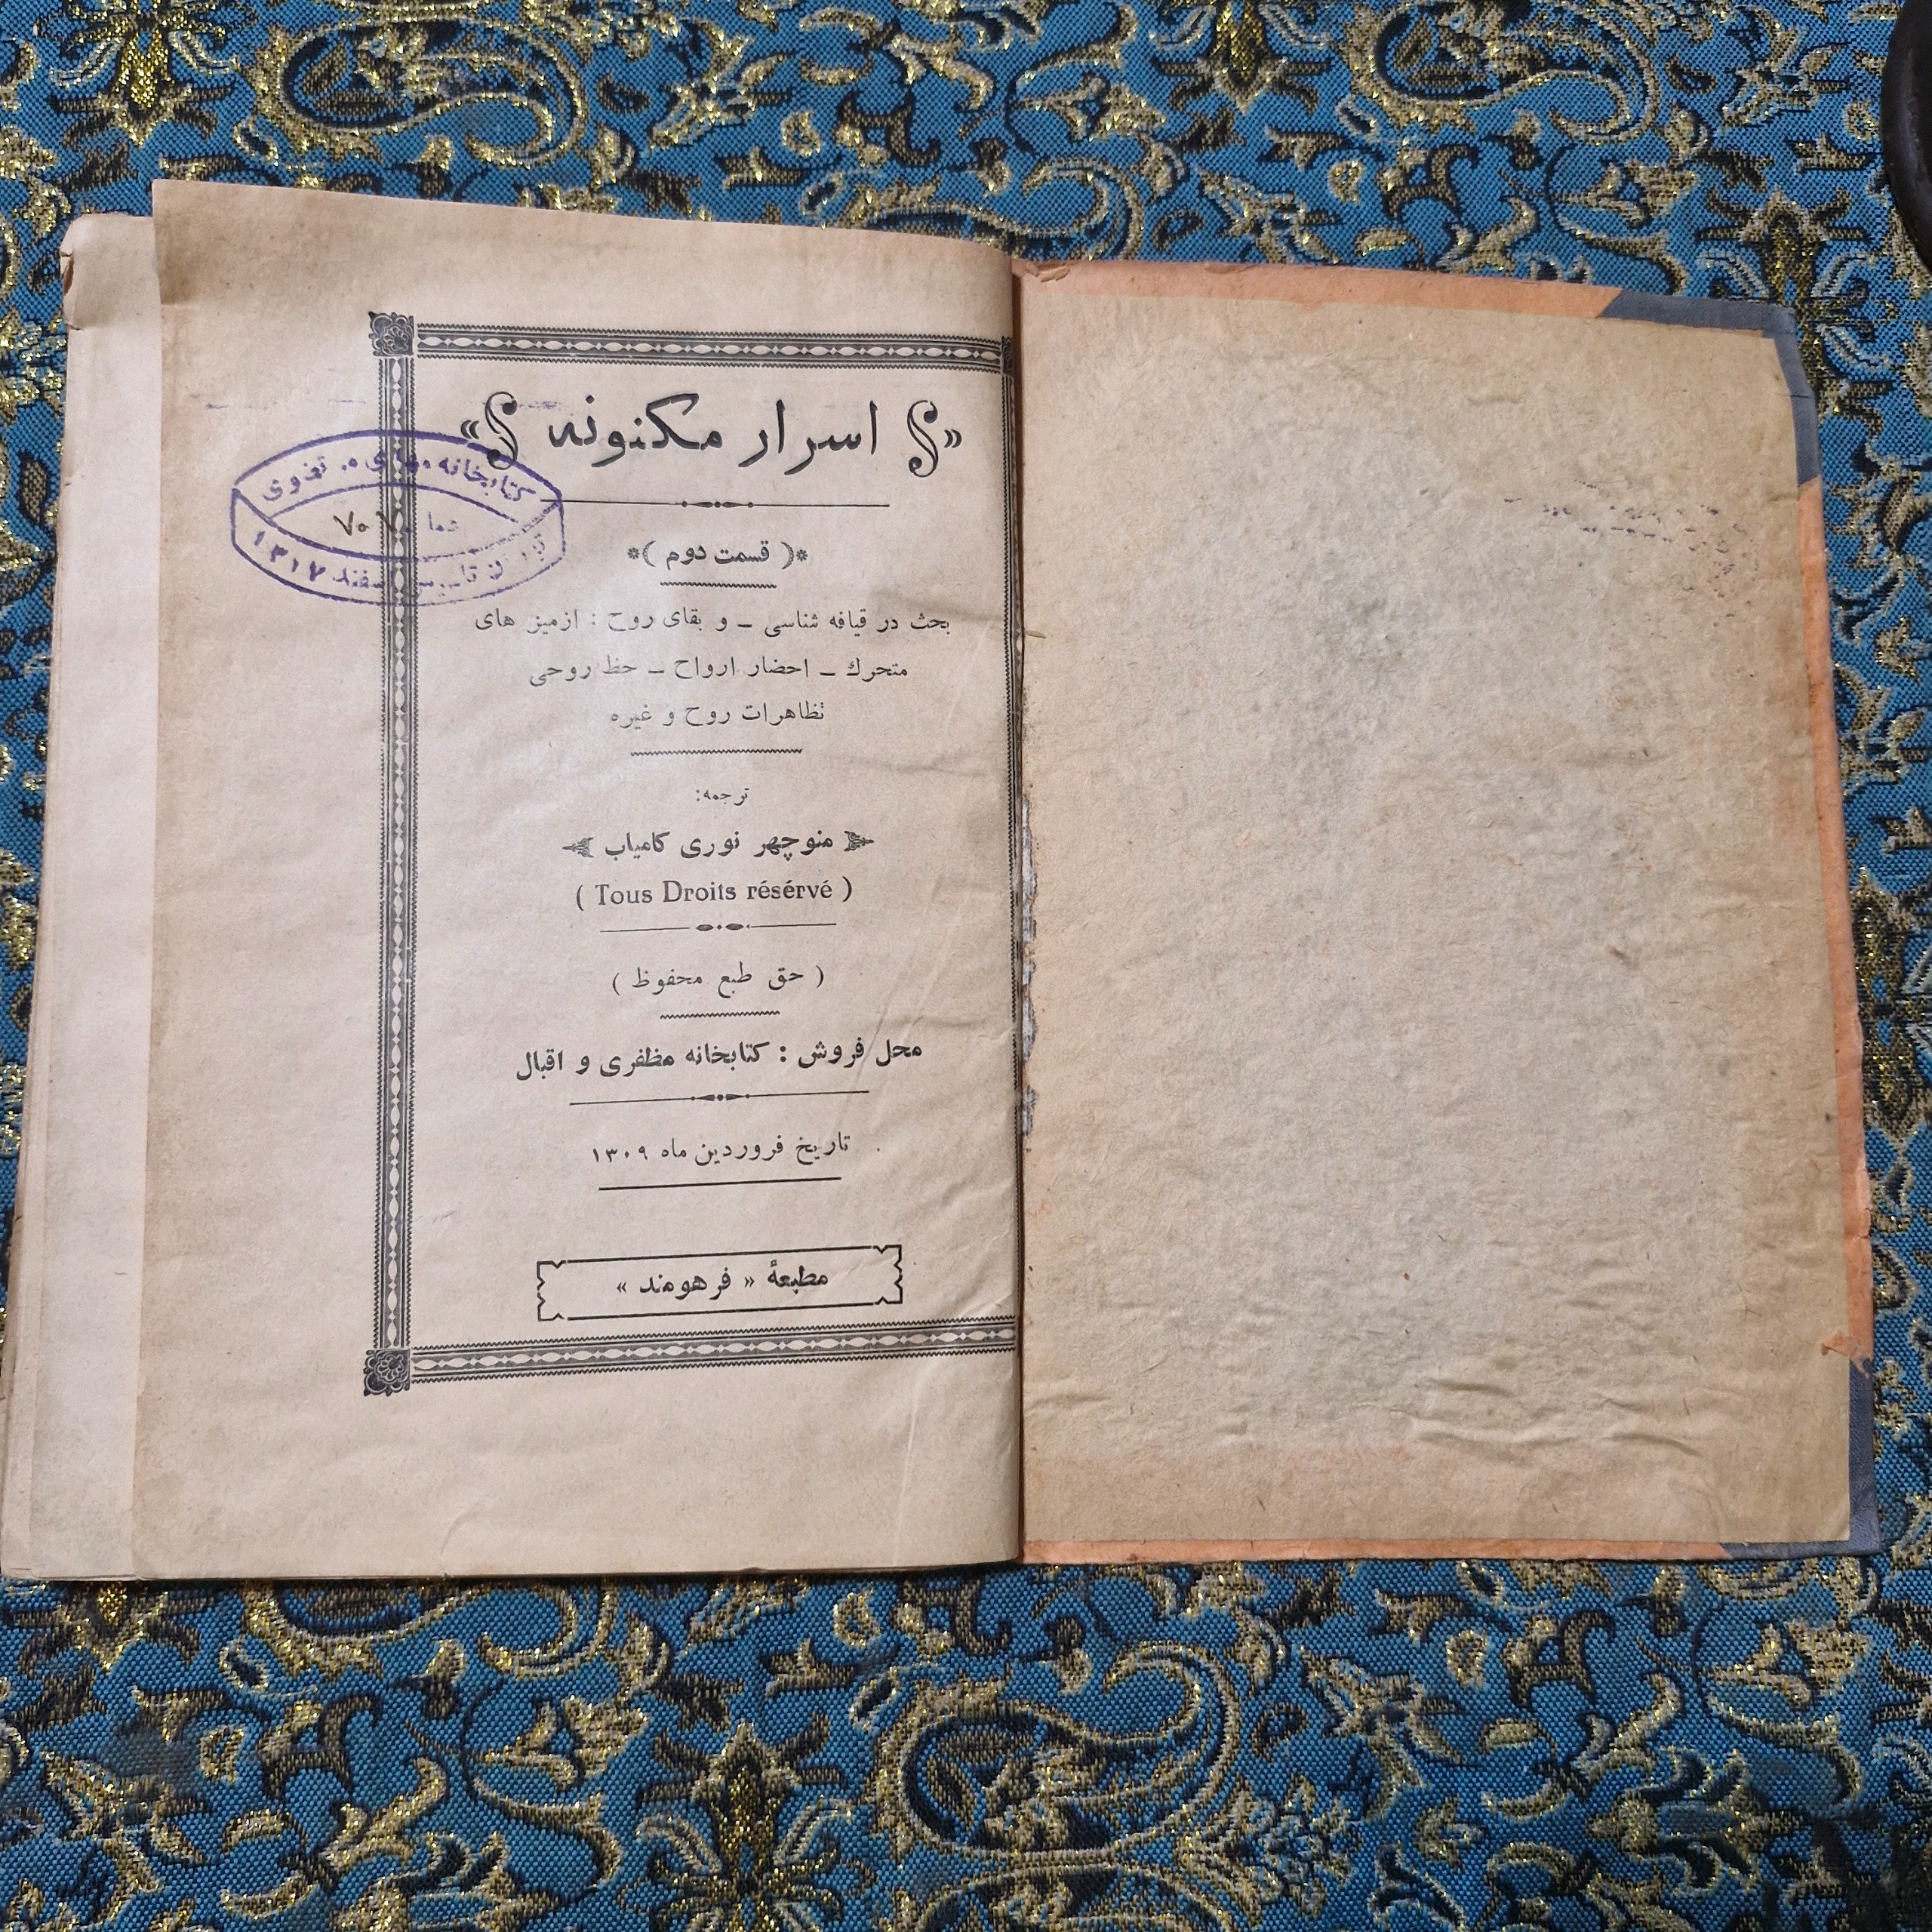 « اسرار مکنونه »
*( قسمت دوم )*
بحث در قیافه شناسی ــ و بقای روح : ازمیز های
متحرك ــ احضار ارواح ــ حظ روحی
تظاهرات روح و غیره
ترجمه:
منوچهر نوری کامیاب
( Tous Droits résérvé )
( حق طبع محفوظ )
محل فروش : کتابخانه مظفری و اقبال
تاریخ فروردین ماه ۱۳۰۹
مطبعهٔ « فرهومند »
کتابخانه
اسفند ۱۳۱۲